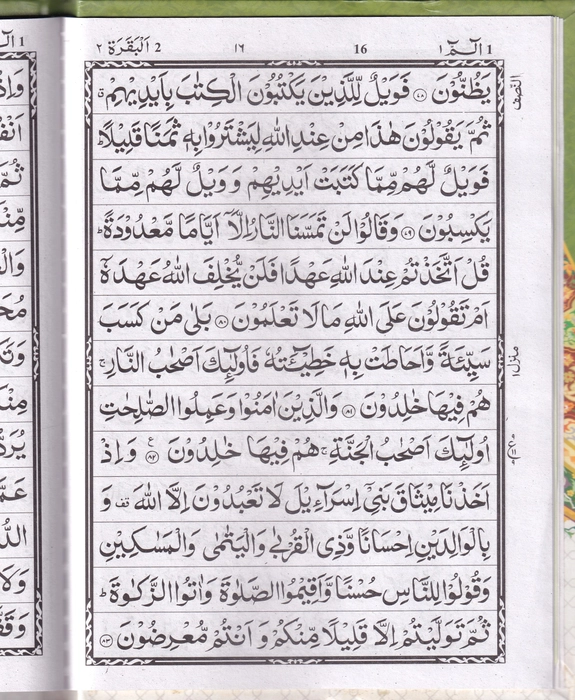 1 الٓمّٓ ١ 16 ١٦ 2 اَلْبَقَرَة ٢
یَظُنُّوْنَ ﴿۷۸﴾ فَوَیْلٌ لِّلَّذِیْنَ یَكْتُبُوْنَ الْكِتٰبَ بِاَیْدِیْهِمْ ۗ
ثُمَّ یَقُوْلُوْنَ هٰذَا مِنْ عِنْدِ اللّٰهِ لِیَشْتَرُوْا بِهٖ ثَمَنًا قَلِیْلًا ؕ
فَوَیْلٌ لَّهُمْ مِّمَّا كَتَبَتْ اَیْدِیْهِمْ وَ وَیْلٌ لَّهُمْ مِّمَّا
یَكْسِبُوْنَ ﴿۷۹﴾ وَقَالُوْا لَنْ تَمَسَّنَا النَّارُ اِلَّاۤ اَیَّامًا مَّعْدُوْدَةً ؕ
قُلْ اَتَّخَذْتُمْ عِنْدَ اللّٰهِ عَهْدًا فَلَنْ یُّخْلِفَ اللّٰهُ عَهْدَهٗۤ
اَمْ تَقُوْلُوْنَ عَلَی اللّٰهِ مَا لَا تَعْلَمُوْنَ ﴿۸۰﴾ بَلٰی مَنْ كَسَبَ
سَیِّئَةً وَّاَحَاطَتْ بِهٖ خَطِیْٓـَٔتُهٗ فَاُولٰٓئِكَ اَصْحٰبُ النَّارِ ۚ
هُمْ فِیْهَا خٰلِدُوْنَ ﴿۸۱﴾ وَالَّذِیْنَ اٰمَنُوْا وَعَمِلُوا الصّٰلِحٰتِ
اُولٰٓئِكَ اَصْحٰبُ الْجَنَّةِ ۚ هُمْ فِیْهَا خٰلِدُوْنَ ﴿۸۲﴾ ع وَاِذْ
اَخَذْنَا مِیْثَاقَ بَنِیْۤ اِسْرَآءِیْلَ لَا تَعْبُدُوْنَ اِلَّا اللّٰهَ قف وَ
بِالْوَالِدَیْنِ اِحْسَانًا وَّذِی الْقُرْبٰی وَالْیَتٰمٰی وَالْمَسٰكِیْنِ
وَقُوْلُوْا لِلنَّاسِ حُسْنًا وَّاَقِیْمُوا الصَّلٰوةَ وَاٰتُوا الزَّكٰوةَ ؕ
ثُمَّ تَوَلَّیْتُمْ اِلَّا قَلِیْلًا مِّنْكُمْ وَاَنْتُمْ مُّعْرِضُوْنَ ﴿۸۳﴾
النصف
منزل ١